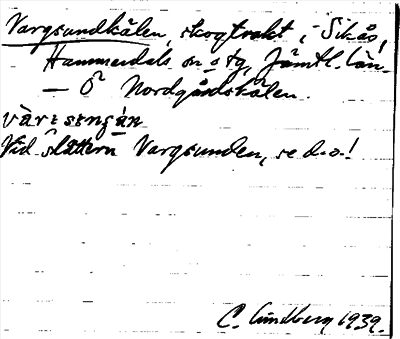 Vargsundkälen skogtrakt i Sikås,
Hammerdals sn o tg, Jämtl. län.
— Ö Nordgårdskälen.
Vid slåttern Vargsunden, se d.o.!
C. Lundberg 1939.